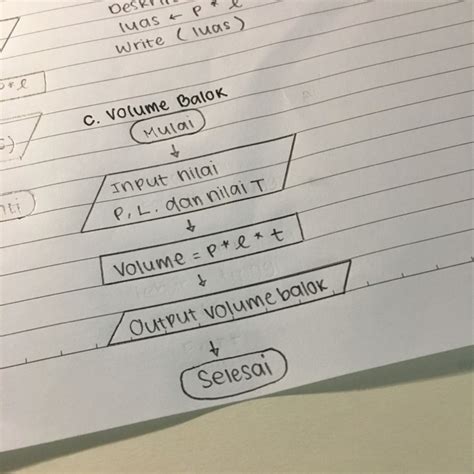 luas ← p * l
Write (luas)
c. Volume Balok
Mulai
Input nilai
P, L. dan nilai T
Volume = p * l * t
Output volume balok
Selesai